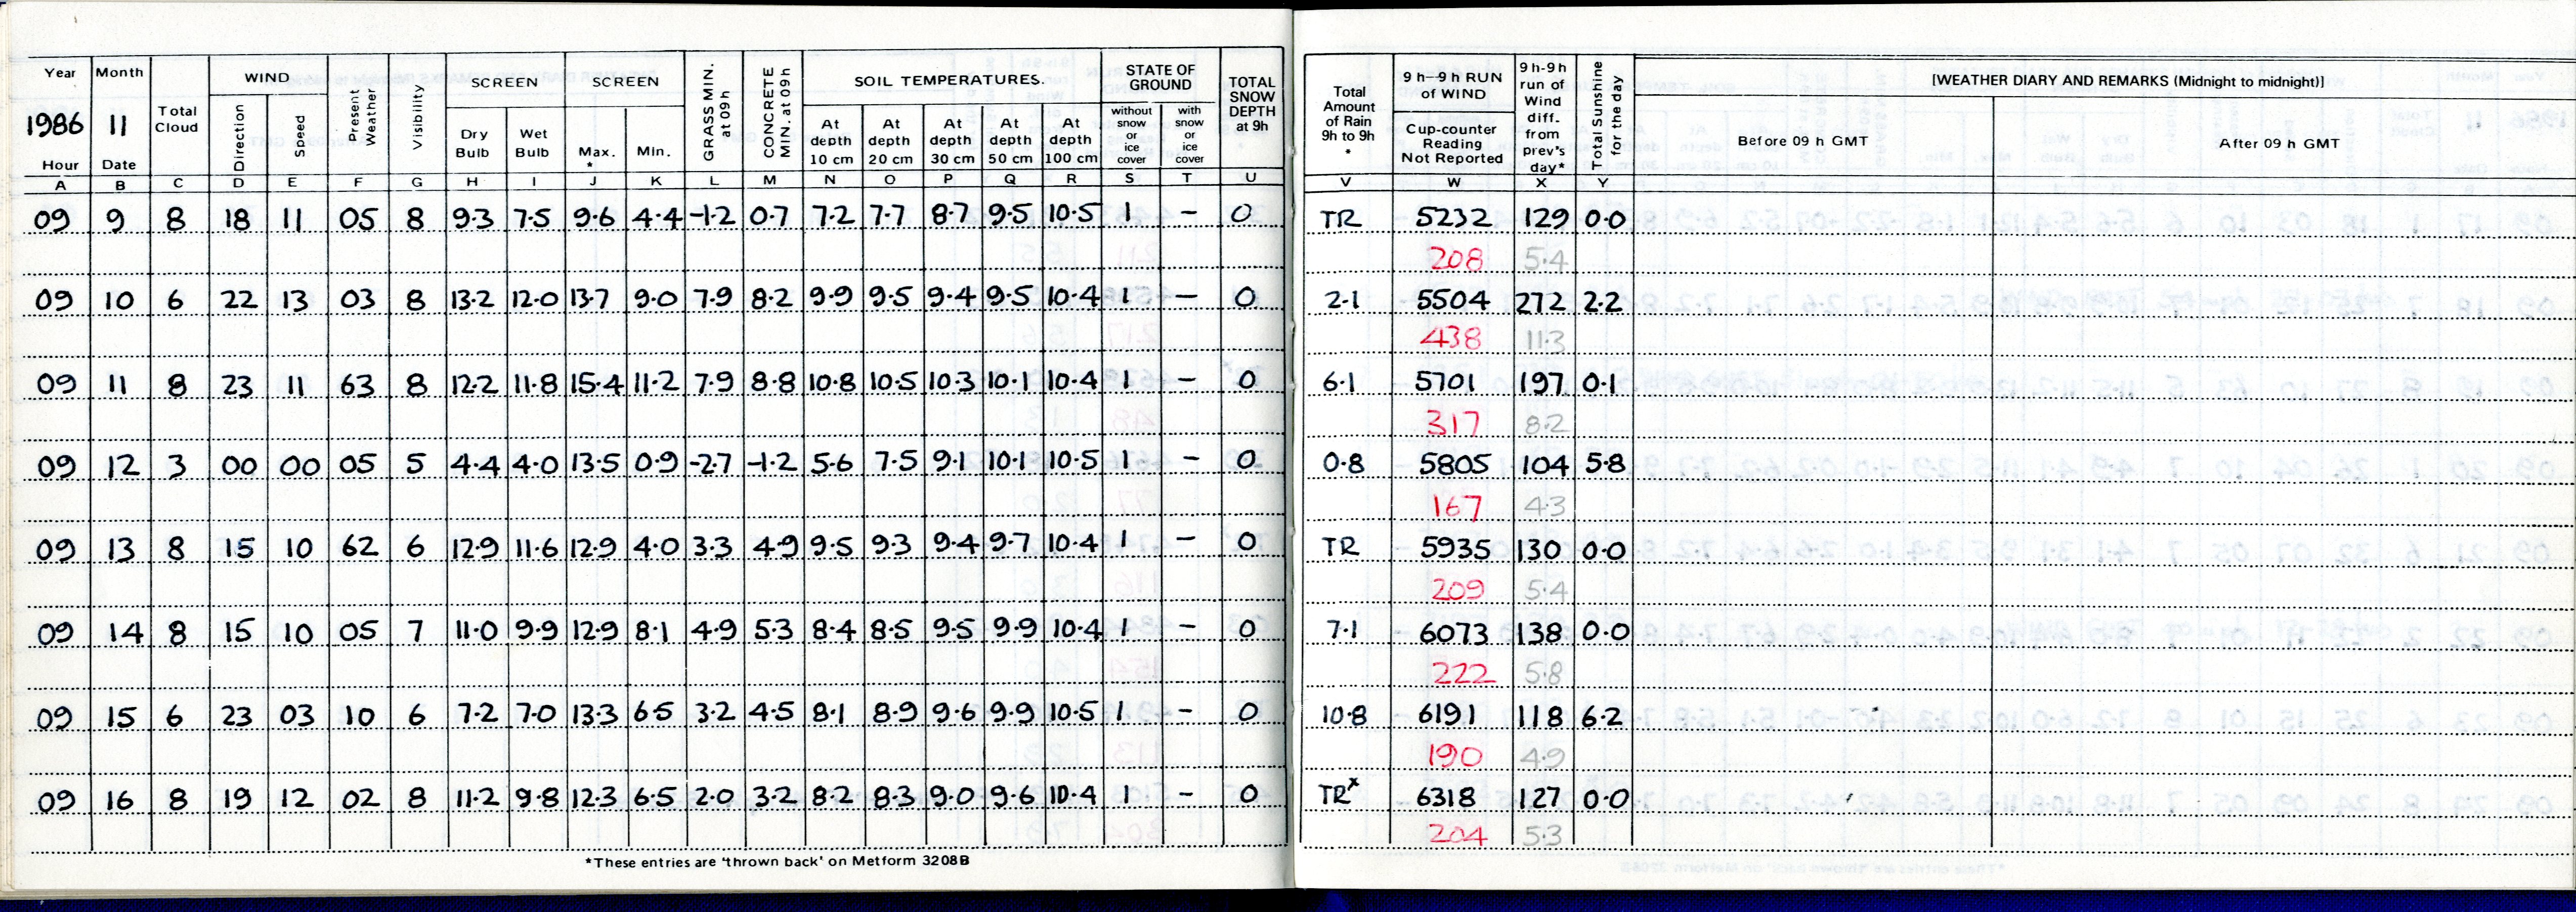 Year Month WIND SCREEN SCREEN SOIL TEMPERATURES. STATE OF GROUND TOTAL SNOW DEPTH at 9h
1986 11 Total Cloud Direction Speed Present Weather Visibility Dry Bulb Wet Bulb Max. * Min. GRASS MIN. at 09 h CONCRETE MIN. at 09 h At depth 10 cm At depth 20 cm At depth 30 cm At depth 50 cm At depth 100 cm without snow or ice cover with snow or ice cover
Hour Date
Total Amount of Rain 9h to 9h * 9 h—9 h RUN of WIND Cup-counter Reading Not Reported 9 h-9h run of Wind diff. from prev's day* Total Sunshine for the day [WEATHER DIARY AND REMARKS (Midnight to midnight)]
Before 09 h GMT After 09 h GMT
A B C D E F G H I J K L M N O P Q R S T U V W X Y
09 9 8 18 11 05 8 9.3 7.5 9.6 4.4 -1.2 0.7 7.2 7.7 8.7 9.5 10.5 1 – 0 TR 5232 129 0.0
208 5.4
09 10 6 22 13 03 8 13.2 12.0 13.7 9.0 7.9 8.2 9.9 9.5 9.4 9.5 10.4 1 – 0 2.1 5504 272 2.2
438 11.3
09 11 8 23 11 63 8 12.2 11.8 15.4 11.2 7.9 8.8 10.8 10.5 10.3 10.1 10.4 1 – 0 6.1 5701 197 0.1
317 8.2
09 12 3 00 00 05 5 4.4 4.0 13.5 0.9 -2.7 -1.2 5.6 7.5 9.1 10.1 10.5 1 – 0 0.8 5805 104 5.8
167 4.3
09 13 8 15 10 62 6 12.9 11.6 12.9 4.0 3.3 4.9 9.5 9.3 9.4 9.7 10.4 1 – 0 TR 5935 130 0.0
209 5.4
09 14 8 15 10 05 7 11.0 9.9 12.9 8.1 4.9 5.3 8.4 8.5 9.5 9.9 10.4 1 – 0 7.1 6073 138 0.0
222 5.8
09 15 6 23 03 10 6 7.2 7.0 13.3 6.5 3.2 4.5 8.1 8.9 9.6 9.9 10.5 1 – 0 10.8 6191 118 6.2
190 4.9
09 16 8 19 12 02 8 11.2 9.8 12.3 6.5 2.0 3.2 8.2 8.3 9.0 9.6 10.4 1 – 0 TR* 6318 127 0.0
204 5.3
*These entries are 'thrown back' on Metform 3208B